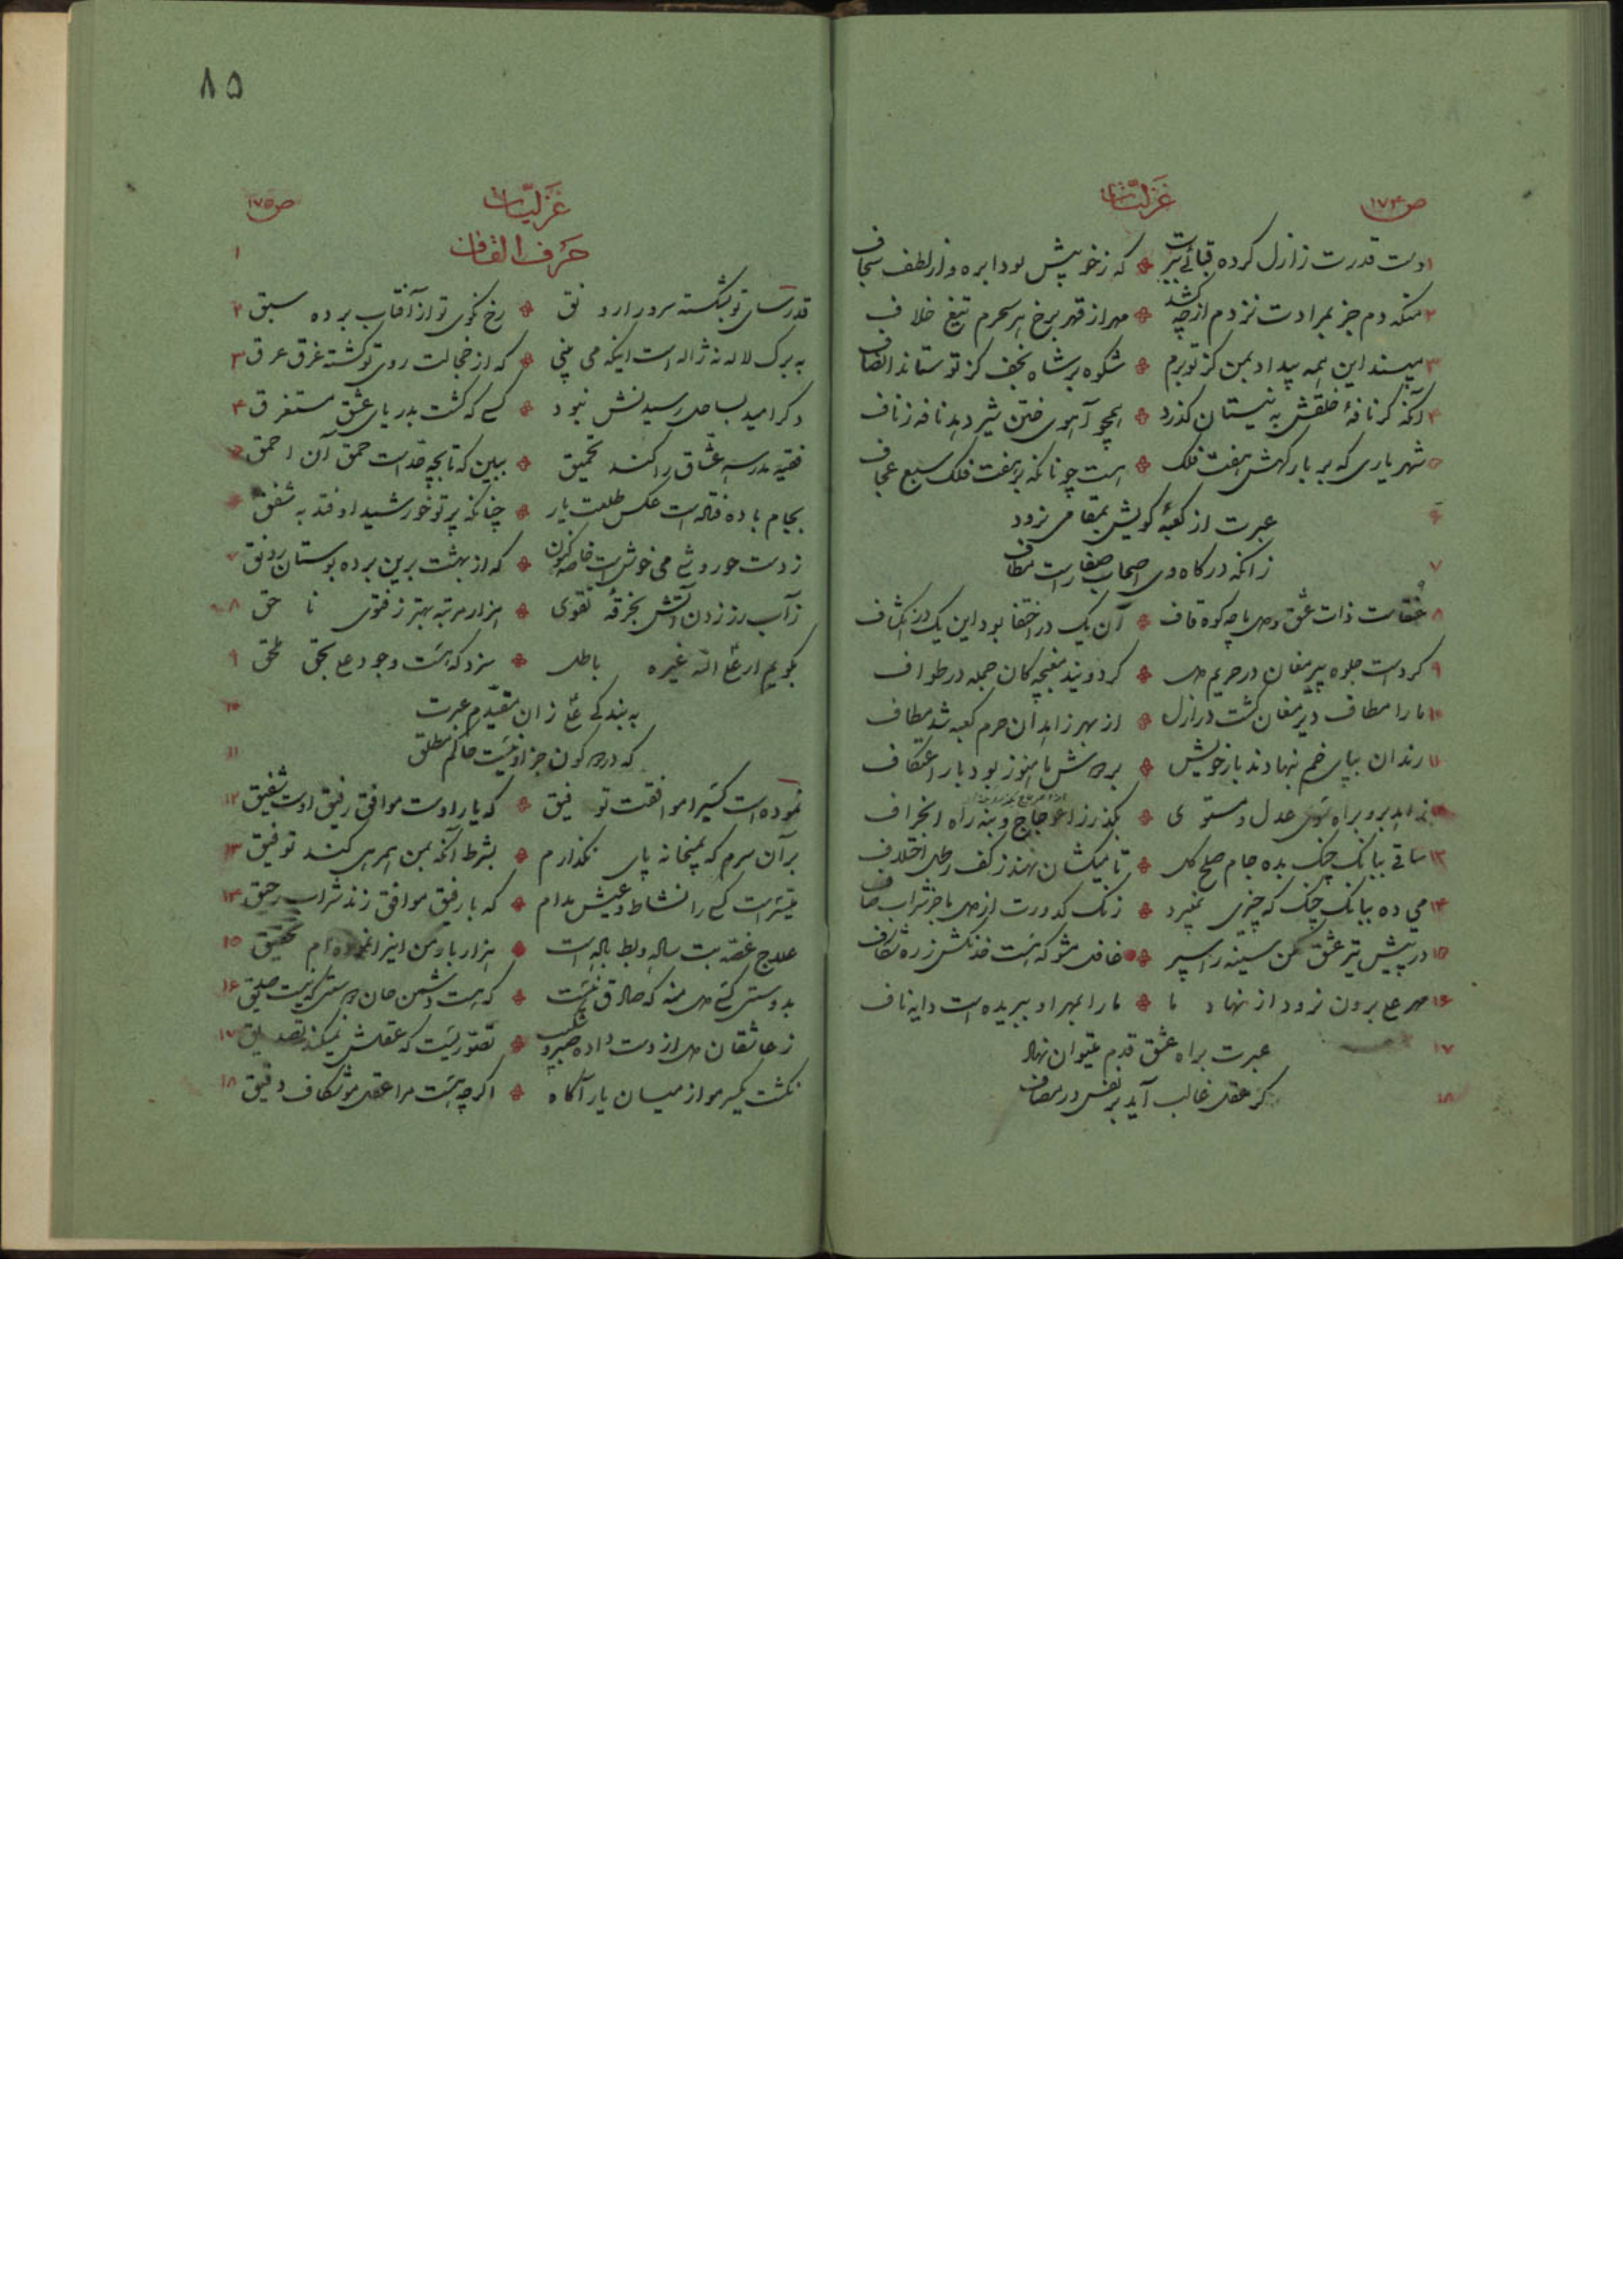 ص ۱۷۴
غزلیات
۱ دست قدرت ز ازل کرده قبائی ببرت که ز خور پیش بود ابره و از لطف سجاف
۲ منکه دم جز بمرادت نزدم از چه کشد مهر از قهر برخ هر سحرم تیغ خلاف
۳ مپسند این همه بیداد بمن کز تو برم شکوه بر شاه نجف کز تو ستاند انصاف
۴ آنکه گر نافهٔ خلقش به نیستان گذرد همچو آهوی ختن شیر دهد نافه ز ناف
۵ شهریاری که بر بار گهش هفت فلک هست چونانکه بر هفت فلک سبع عجاف
۶ عبرت از کعبهٔ کویش بمقامی نرود
۷ زانکه درگاه وی اصحاب صفا راست مطاف
۸ عنقاست ذات عشق و دل ما چه کوه قاف آن یک در اختفا بود این یک در انکشاف
۹ کردست جلوه پیر مغان در حریم دل گردویند مغبچه کان جمله در طواف
۱۰ ما را مطاف دیر مغان گشت در ازل از بهر زاهدان حرم کعبه شد مطاف
۱۱ رندان بپای خم نهادند بار خویش بر درش ما هنوز بود بار اعتکاف
۱۲ زاهد برو براه سوی عدل و مستوی بگذر ز اعوجاج و بنه راه انحراف
۱۳ ساقی ببانگ چنگ بده جام صلح کل تا میکشان نهند ز کف رطل اختلاف
۱۴ می ده ببانگ چنگ که چیزی نمیبرد زنگ کدورت از دل ما جز شراب صاف
۱۵ در پیش تیر عشق مکن سینه را سپر غافل مشو که هست خدنگش زره شکاف
۱۶ مهر علی برون نرود از نهاد ما ما را بمهر او ببریده است دایه ناف
۱۷ عبرت براه عشق قدم میتوان نهاد
۱۸ گر عقل غالب آید بر نفس در مصاف
۸۵
ص ۱۷۵
غزلیات
۱ حرف القاف
قد رسای تو بشکسته سرو را رونق رخ نکوی تو از آفتاب برده سبق ۲
به برک لاله نه ژاله است اینکه می بینی که از خجالت روی تو گشته غرق عرق ۳
دگر امید بساحل رسیدنش نبود کسی که گشت بدریای عشق مستغرق ۴
فقیه مدرسه عشاق را کند تحمیق ببین که تا بچه حد است حمق آن احمق ۵
بجام باده فتاده است عکس طلعت یار چنانکه پرتو خورشید اوفتد به شفق ۶
ز دست حوروشی می خوش است خاصه کنون که از بهشت برین برده بوستان رونق ۷
ز آب رز زدن آتش بخرقهٔ تقوی هزار مرتبه بهتر ز فتوی نا حق ۸
بگویم ار علی الله غیره باطل سزد که هست وجود علی بحق ملحق ۹
به بندگی علی زان مقیدم عبرت ۱۰
که در دو کون جز او نیست حاکم مطلق ۱۱
نموده است کسی را موافقت توفیق که یار اوست موافق رفیق اوست شفیق ۱۲
بر آن سرم که بمیخانه پای نگذارم بشرط آنکه بمن همرهی کند توفیق ۱۳
میسر است کسی را نشاط و عیش مدام که با رفیق موافق زند شراب رحیق ۱۴
علاج غصه بت ساله و بط باله است هزار بار من این را نموده ام تحقیق ۱۵
بدوستی کسی دل منه که صادق نیست که هست دشمن جان دوستی که نیست صدیق ۱۶
ز عاشقان دل از دست داده صبر و شکیب تصوریست که عقلش نمیکند تصدیق ۱۷
نگشت یکسر مو از میان یار آگاه اگرچه هست مرا عقل موشکاف دقیق ۱۸